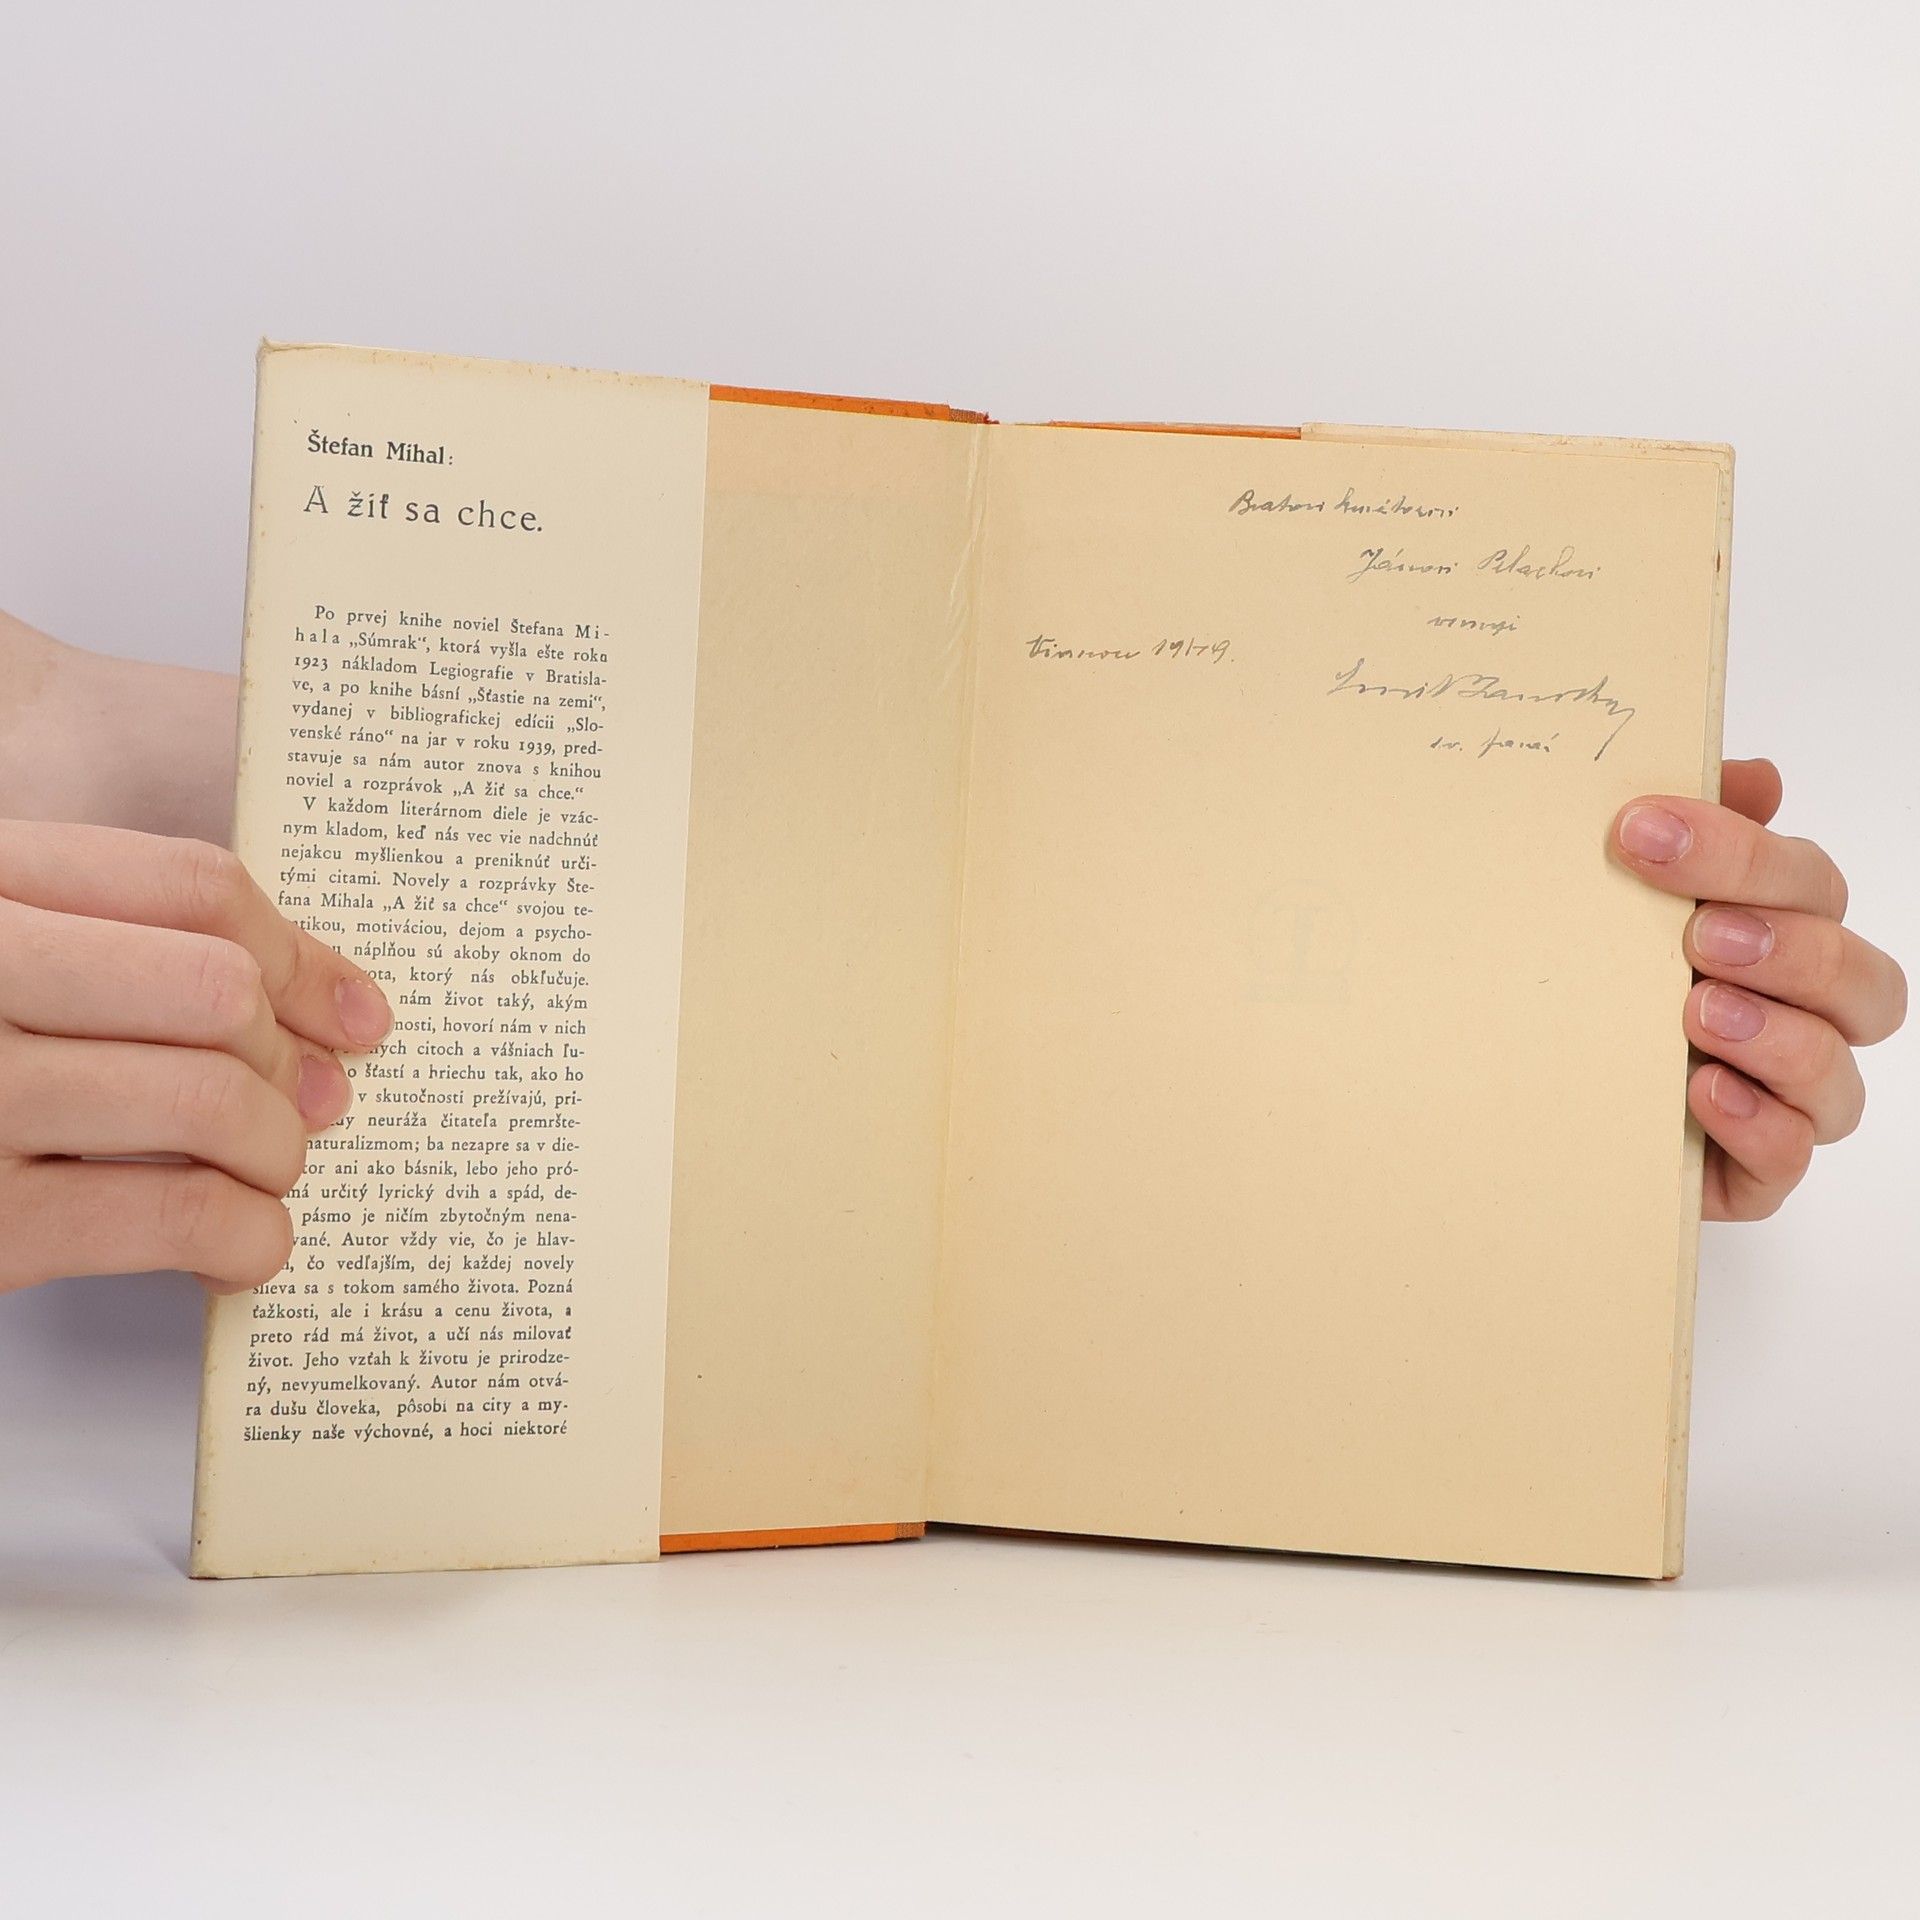 Štefan Mihal:
A žiť sa chce.
Po prvej knihe noviel Štefana Mi-
hala „Súmrak“, ktorá vyšla ešte roku
1923 nákladom Legiografie v Bratisla-
ve, a po knihe básní „Šťastie na zemi“,
vydanej v bibliografickej edícii „Slo-
venské ráno“ na jar v roku 1939, pred-
stavuje sa nám autor znova s knihou
noviel a rozprávok „A žiť sa chce.“
V každom literárnom diele je vzác-
nym kladom, keď nás vec vie nadchnúť
nejakou myšlienkou a preniknúť urči-
tými citami. Novely a rozprávky Šte-
fana Mihala „A žiť sa chce“ svojou te-
tikou, motiváciou, dejom a psycho-
náplňou sú akoby oknom do
ota, ktorý nás obkľučuje.
nám život taký, akým
nosti, hovorí nám v nich
ných citoch a vášniach ľu-
o šťastí a hriechu tak, ako ho
v skutočnosti prežívajú, pri-
dy neuráža čitateľa premršte-
naturalizmom; ba nezapre sa v die-
tor ani ako básnik, lebo jeho pró-
má určitý lyrický dvih a spád, de-
pásmo je ničím zbytočným nena-
vané. Autor vždy vie, čo je hlav-
čo vedľajším, dej každej novely
slieva sa s tokom samého života. Pozná
ťažkosti, ale i krásu a cenu života, a
preto rád má život, a učí nás milovať
život. Jeho vzťah k životu je prirodze-
ný, nevyumelkovaný. Autor nám otvá-
ra dušu človeka, pôsobí na city a my-
šlienky naše výchovné, a hoci niektoré
Bratovi
Jánovi
venuje